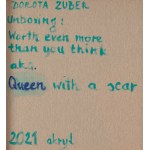 DOROTA ZUBER
Unboxing:
Worth even more
than you think
aka.
Queen with a scar
2021 akryl